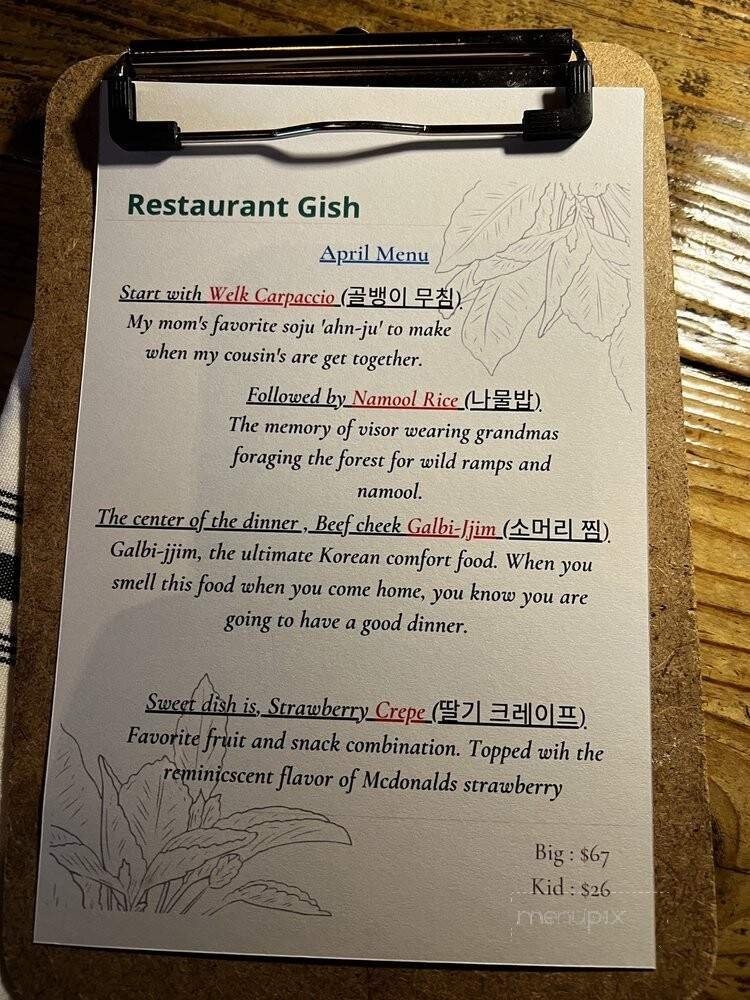 Restaurant Gish
April Menu
Start with Welk Carpaccio (골뱅이 무침)
My mom's favorite soju 'ahn-ju' to make
when my cousin's are get together.
Followed by Namool Rice (나물밥)
The memory of visor wearing grandmas
foraging the forest for wild ramps and
namool.
The center of the dinner , Beef cheek Galbi-Jjim (소머리 찜)
Galbi-jjim, the ultimate Korean comfort food. When you
smell this food when you come home, you know you are
going to have a good dinner.
Sweet dish is, Strawberry Crepe (딸기 크레이프)
Favorite fruit and snack combination. Topped wih the
reminicscent flavor of Mcdonalds strawberry
Big : $67
Kid : $26
menupix